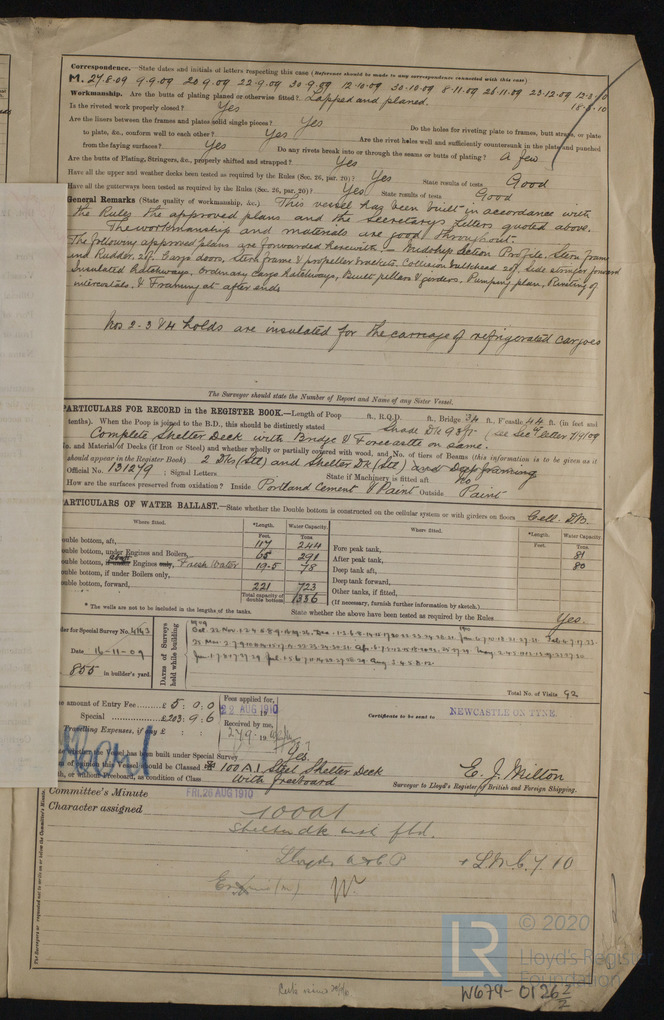 Correspondence.—State dates and initials of letters respecting this case (Reference should be made to any correspondence connected with this case)
M. 27.8.09 9.9.09 20.9.09 22.9.09 30.9.09 12.10.09 30.10.09 8.11.09 26.11.09 23.12.09
Workmanship. Are the butts of plating planed or otherwise fitted? Lapped and planed.
Is the riveted work properly closed? Yes
Are the liners between the frames and plates solid single pieces? Yes Do the holes for riveting plate to frames, butt straps, or plate
to plate, &c., conform well to each other? Yes Are the rivet holes well and sufficiently countersunk in the plate and punched
from the faying surfaces? Yes Do any rivets break into or through the seams or butts of plating? A few
Are the butts of Plating, Stringers, &c., properly shifted and strapped? Yes
Have all the upper and weather decks been tested as required by the Rules (Sec. 26, par. 20)? Yes State results of tests Good
Have all the gutterways been tested as required by the Rules (Sec. 26, par. 20)? Yes State results of tests Good
General Remarks (State quality of workmanship, &c.) This vessel has been built in accordance with
the Rules the approved plans and the Secretary's letters quoted above.
The workmanship and materials are good throughout.
The following approved plans are forwarded herewith — Midship Section Profile, Stern frame
and Rudder 2 off, Cargo doors, Stern frame & propeller brackets, Collision bulkhead 2 off, Side stringer forward
Insulated Hatchways, Ordinary Cargo Hatchways, Built pillars & girders, Pumping plan, Riveting of
intercostals & Framing at after ends
Nos 2-3 & 4 holds are insulated for the carriage of refrigerated cargoes
The Surveyor should state the Number of Report and Name of any Sister Vessel.
PARTICULARS FOR RECORD in the REGISTER BOOK.—Length of Poop ft., R.Q.D. ft., Bridge 34 ft., F'castle 44 ft. (in feet and
tenths). When the Poop is joined to the B.D., this should be distinctly stated Shade Dk 93 ft. (see Sec's letter
Complete Shelter Deck with Bridge & Forecastle on same.
No. and Material of Decks (if Iron or Steel) and whether wholly or partially covered with wood, and No. of tiers of Beams (this information is to be given as it
should appear in the Register Book) 2 Dks (Stl) and Shelter Dk (Stl) and Deep framing
Official No. 131279 ; Signal Letters State if Machinery is fitted aft No
How are the surfaces preserved from oxidation? Inside Portland Cement & Paint Outside Paint
PARTICULARS OF WATER BALLAST.—State whether the Double bottom is constructed on the cellular system or with girders on floors Cell. DB.
Where fitted. *Length. Water Capacity. Where fitted. *Length. Water Capacity.
Feet. Tons. Feet. Tons.
Double bottom, aft, 117 244 Fore peak tank, 81
Double bottom, under Engines and Boilers, 65 291 After peak tank, 80
Double bottom, if under Engines only, Fresh Water 19.5 78 Deep tank aft,
Double bottom, if under Boilers only, Deep tank forward,
Double bottom, forward, 221 723 Other tanks, if fitted,
Total capacity of double bottom 1336 (If necessary, furnish further information by sketch.)
* The wells are not to be included in the lengths of the tanks. State whether the above have been tested as required by the Rules Yes.
Order for Special Survey No. 4163
Date 16-11-09
855 in builder's yard.
DATES of Surveys held while building
1909
Total No. of Visits 92
amount of Entry Fee £5.0.0
Special £203.9.6
Travelling Expenses, if any £ : :
Fees applied for,
22 AUG 1910
Received by me,
Certificate to be sent to NEWCASTLE ON TYNE.
Vessel has been built under Special Survey Yes.
this Vessel should be Classed ✠ 100A1 Steel Shelter Deck
with, or without Freeboard, as condition of Class with freeboard
E. J. Milton
Surveyor to Lloyd's Register of British and Foreign Shipping.
Committee's Minute FRI. 26 AUG 1910
Character assigned 100A1
Shelter dk with fbd.
Lloyds A&CP + LMC 7.10
The Surveyors are requested not to write on or below the Committee's Minute.
© 2020
LR Lloyd's Register
Foundation
W679-0126 2/2